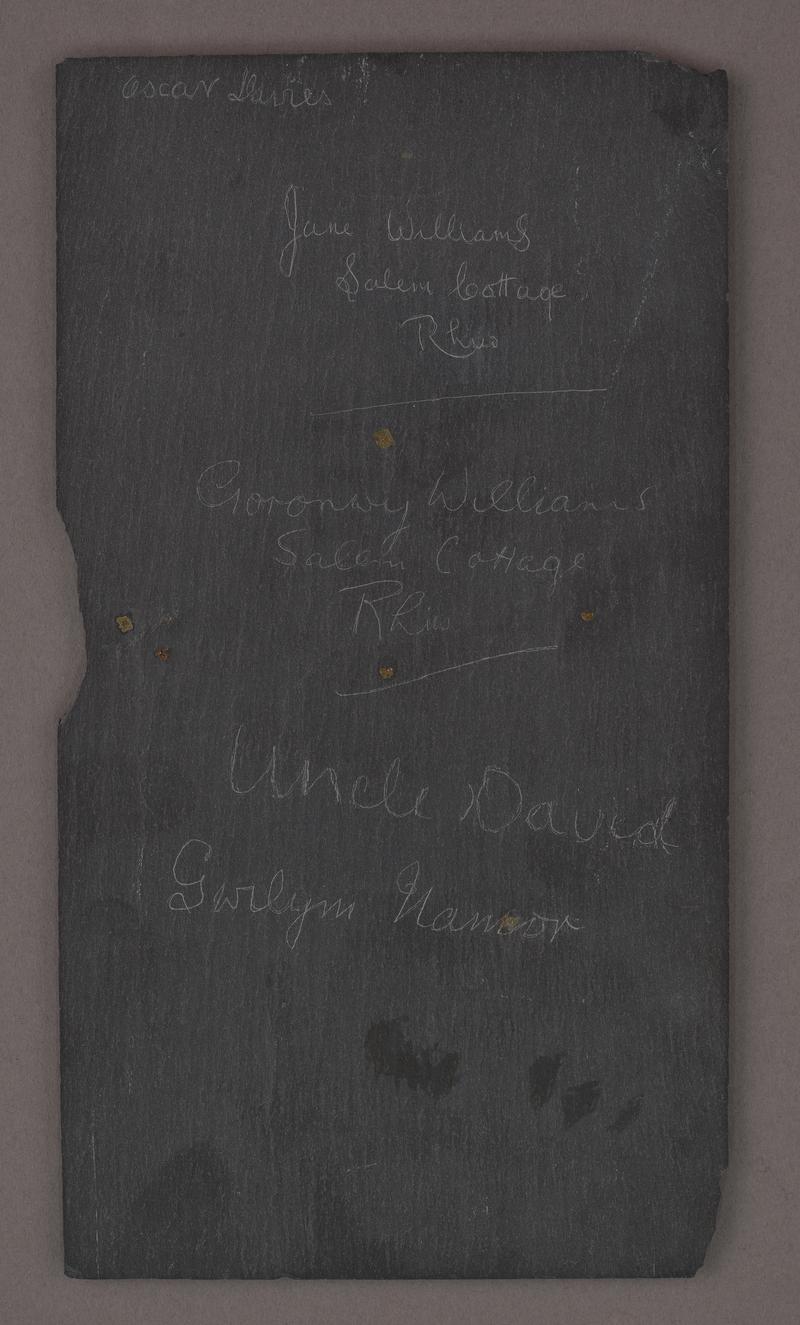 Oscar Davies
Jane Williams
Salem Cottage
Rhiw
Goronwy Williams
Salem Cottage
Rhiw
Uncle David
Gwilym Nanmor